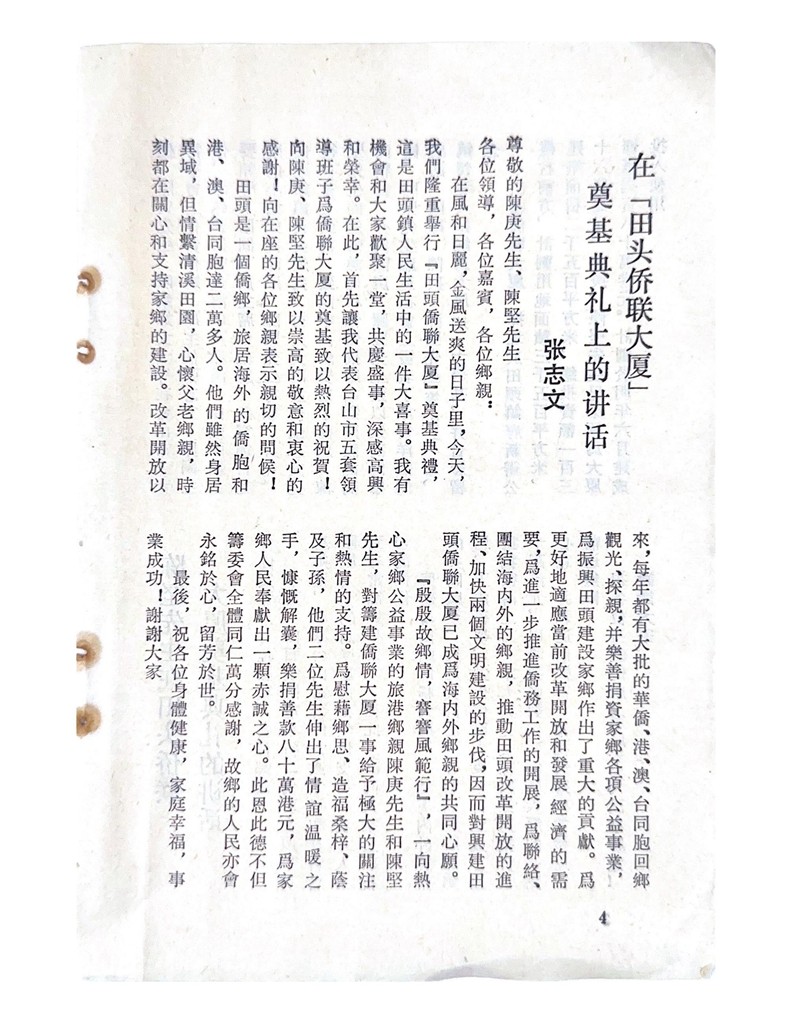 在「田头侨联大厦」
奠基典礼上的讲话
张志文
尊敬的陳庚先生、陳堅先生
各位領導，各位嘉賓，各位鄉親：
在風和日麗，金風送爽的日子里，今天，
我們隆重舉行『田頭僑聯大厦』奠基典禮，
這是田頭鎮人民生活中的一件大喜事。我有
機會和大家歡聚一堂，共慶盛事，深感高興
和榮幸。在此，首先讓我代表台山市五套領
導班子爲僑聯大厦的奠基致以熱烈的祝賀！
向陳庚、陳堅先生致以崇高的敬意和衷心的
感謝！向在座的各位鄉親表示親切的問候！
田頭是一個僑鄉，旅居海外的僑胞和
港、澳、台同胞達二萬多人。他們雖然身居
異域，但情繫清溪田園，心懷父老鄉親，時
刻都在關心和支持家鄉的建設。改革開放以
來，每年都有大批的華僑、港、澳、台同胞回鄉
觀光、探親，并樂善捐資家鄉各項公益事業，
爲振興田頭建設家鄉作出了重大的貢獻。爲
更好地適應當前改革開放和發展經濟的需
要，爲進一步推進僑務工作的開展，爲聯絡、
團結海內外的鄉親，推動田頭改革開放的進
程、加快兩個文明建設的步伐，因而對興建田
頭僑聯大厦已成爲海內外鄉親的共同心願。
『殷殷故鄉情，謇謇風範行』，一向熱
心家鄉公益事業的旅港鄉親陳庚先生和陳堅
先生，對籌建僑聯大厦一事給予極大的關注
和熱情的支持。爲慰藉鄉思、造福桑梓、蔭
及子孫，他們二位先生伸出了情誼温暖之
手，慷慨解囊，樂捐善款八十萬港元，爲家
鄉人民奉獻出一顆赤誠之心。此恩此德不但
籌委會全體同仁萬分感謝，故鄉的人民亦會
永銘於心，留芳於世。
最後，祝各位身體健康，家庭幸福，事
業成功！謝謝大家
4